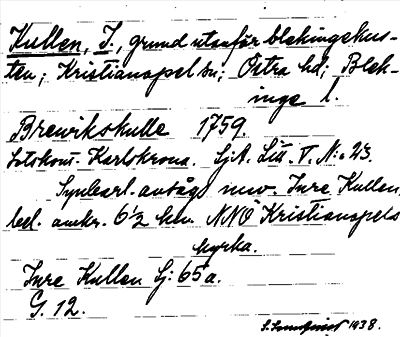 Kullen, I., grund utanför blekingekus-
ten; Kristianopel sn; Östra hd; Blek-
inge l.
Brewikskulle 1759.
Sjökont. Karlskrona. Sj.A. Litt. V. N:o 23.
Synbarl. avsåg nuv. Inre Kullen
bel. omkr. 6½ km. NNO Kristianopels
kyrka.
Inre Kullen Sj: 65a.
G. 12.
1938.